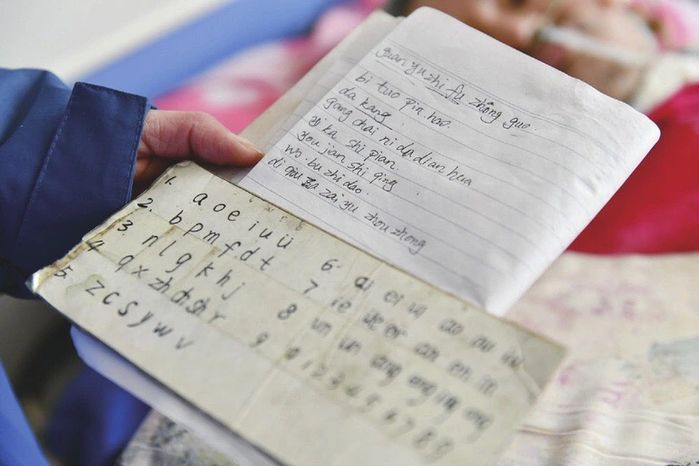 guan yu zhi fu zhōng guo.
bi tuo pin hao.
da kang
gang chai ni da dian hua
yi ka shi pian
you jan shi qing
wo bu zhi dao.
di qiu zai yu zhou zhong
1. a o e i u ü
2. b p m f d t
3 n l g k h j
4 q x zh ch sh r
5. z c s y w v
6. ai ei ui ao ou iu
7 ie üe er an en in
8 un ün ang eng ing ong
9 0 1 2 3 4 5 6 7 8 9